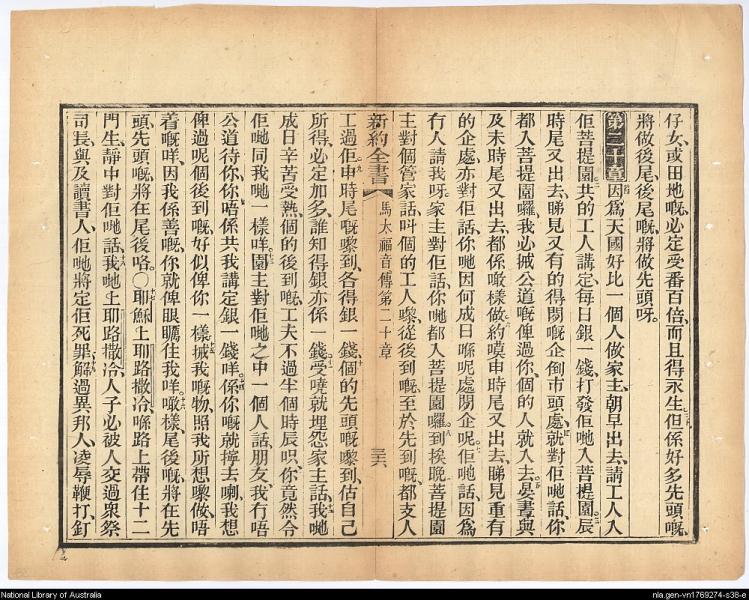 仔女、或田地嘅、必定受番百倍、而且得永生、但係好多先頭嘅、
將做後尾、後尾嘅、將做先頭呀。
第二十章因爲天國好比一個人做家主、朝早出去、請工人入
佢菩提園、共的工人講定、每日銀一錢、打發佢哋入菩提園、辰
時尾又出去、睇見又有的得閒嘅、企倒市頭處、就對佢哋話、你
都入菩提園囉、我必𢬿公道嘅俾過你、個的人就入去、晏晝與
及未時尾又出去、都係噉樣做、約嘆申時尾又出去、睇見重有
的企處、亦對佢話、你哋因何成日喺呢處閒企呢、佢哋話、因爲
冇人請我呀、家主對佢話、你哋都入菩提園囉、到挨晚、菩提園
主對個管家話、叫個的工人嚟、從後到嘅、至於先到嘅、都支人
新約全書 馬太福音傳第二十章 三六
工過佢、申時尾嘅嚟到、各得銀一錢、個的先頭嘅嚟到、估自己
所得、必定加多、誰知得銀亦係一錢、受嘵就埋怨家主話、我哋
成日辛苦受熱、個的後到嘅、工夫不過半個時辰啫、你竟然令
佢哋同我哋一樣咩、園主對佢哋之中一個人話、朋友、我冇唔
公道待你、你唔係共我講定銀一錢咩、係你嘅就擰去喇、我想
俾過呢個後到嘅、好似俾你一樣、𢬿我嘅物、照我所想嚟做、唔
着嘅咩、因我係善嘅、你就俾眼矋住我咩、噉樣尾後嘅、將在先
頭、先頭嘅、將在尾後咯、〇耶穌上耶路撒冷、喺路上帶住十二
門生、靜中對佢哋話、我哋上耶路撒冷、人子必被人交過衆祭
司長、與及讀書人、佢哋將定佢死罪、解過異邦人、凌辱鞭打、釘
National Library of Australia
nla.gen-vn1769274-s38-e